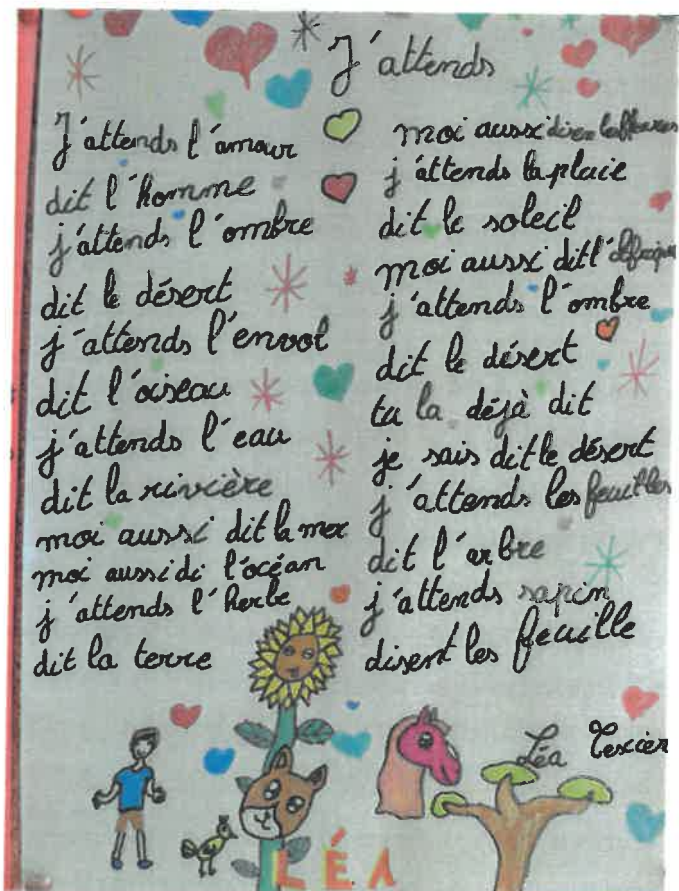 J'attends
J'attends l'amour
dit l'homme
j'attends l'ombre
dit le désert
j'attends l'envol
dit l'oiseau
j'attends l'eau
dit la rivière
moi aussi dit la mer
moi aussi di l'océan
j'attends l'herbe
dit la terre
moi aussi
j'attends la pluie
dit le soleil
moi aussi dit
j'attends l'ombre
dit le désert
tu la déjà dit
je sais dit le désert
j'attends les feuilles
dit l'arbre
j'attends sapin
disent les feuille
Léa Texier
LÉA